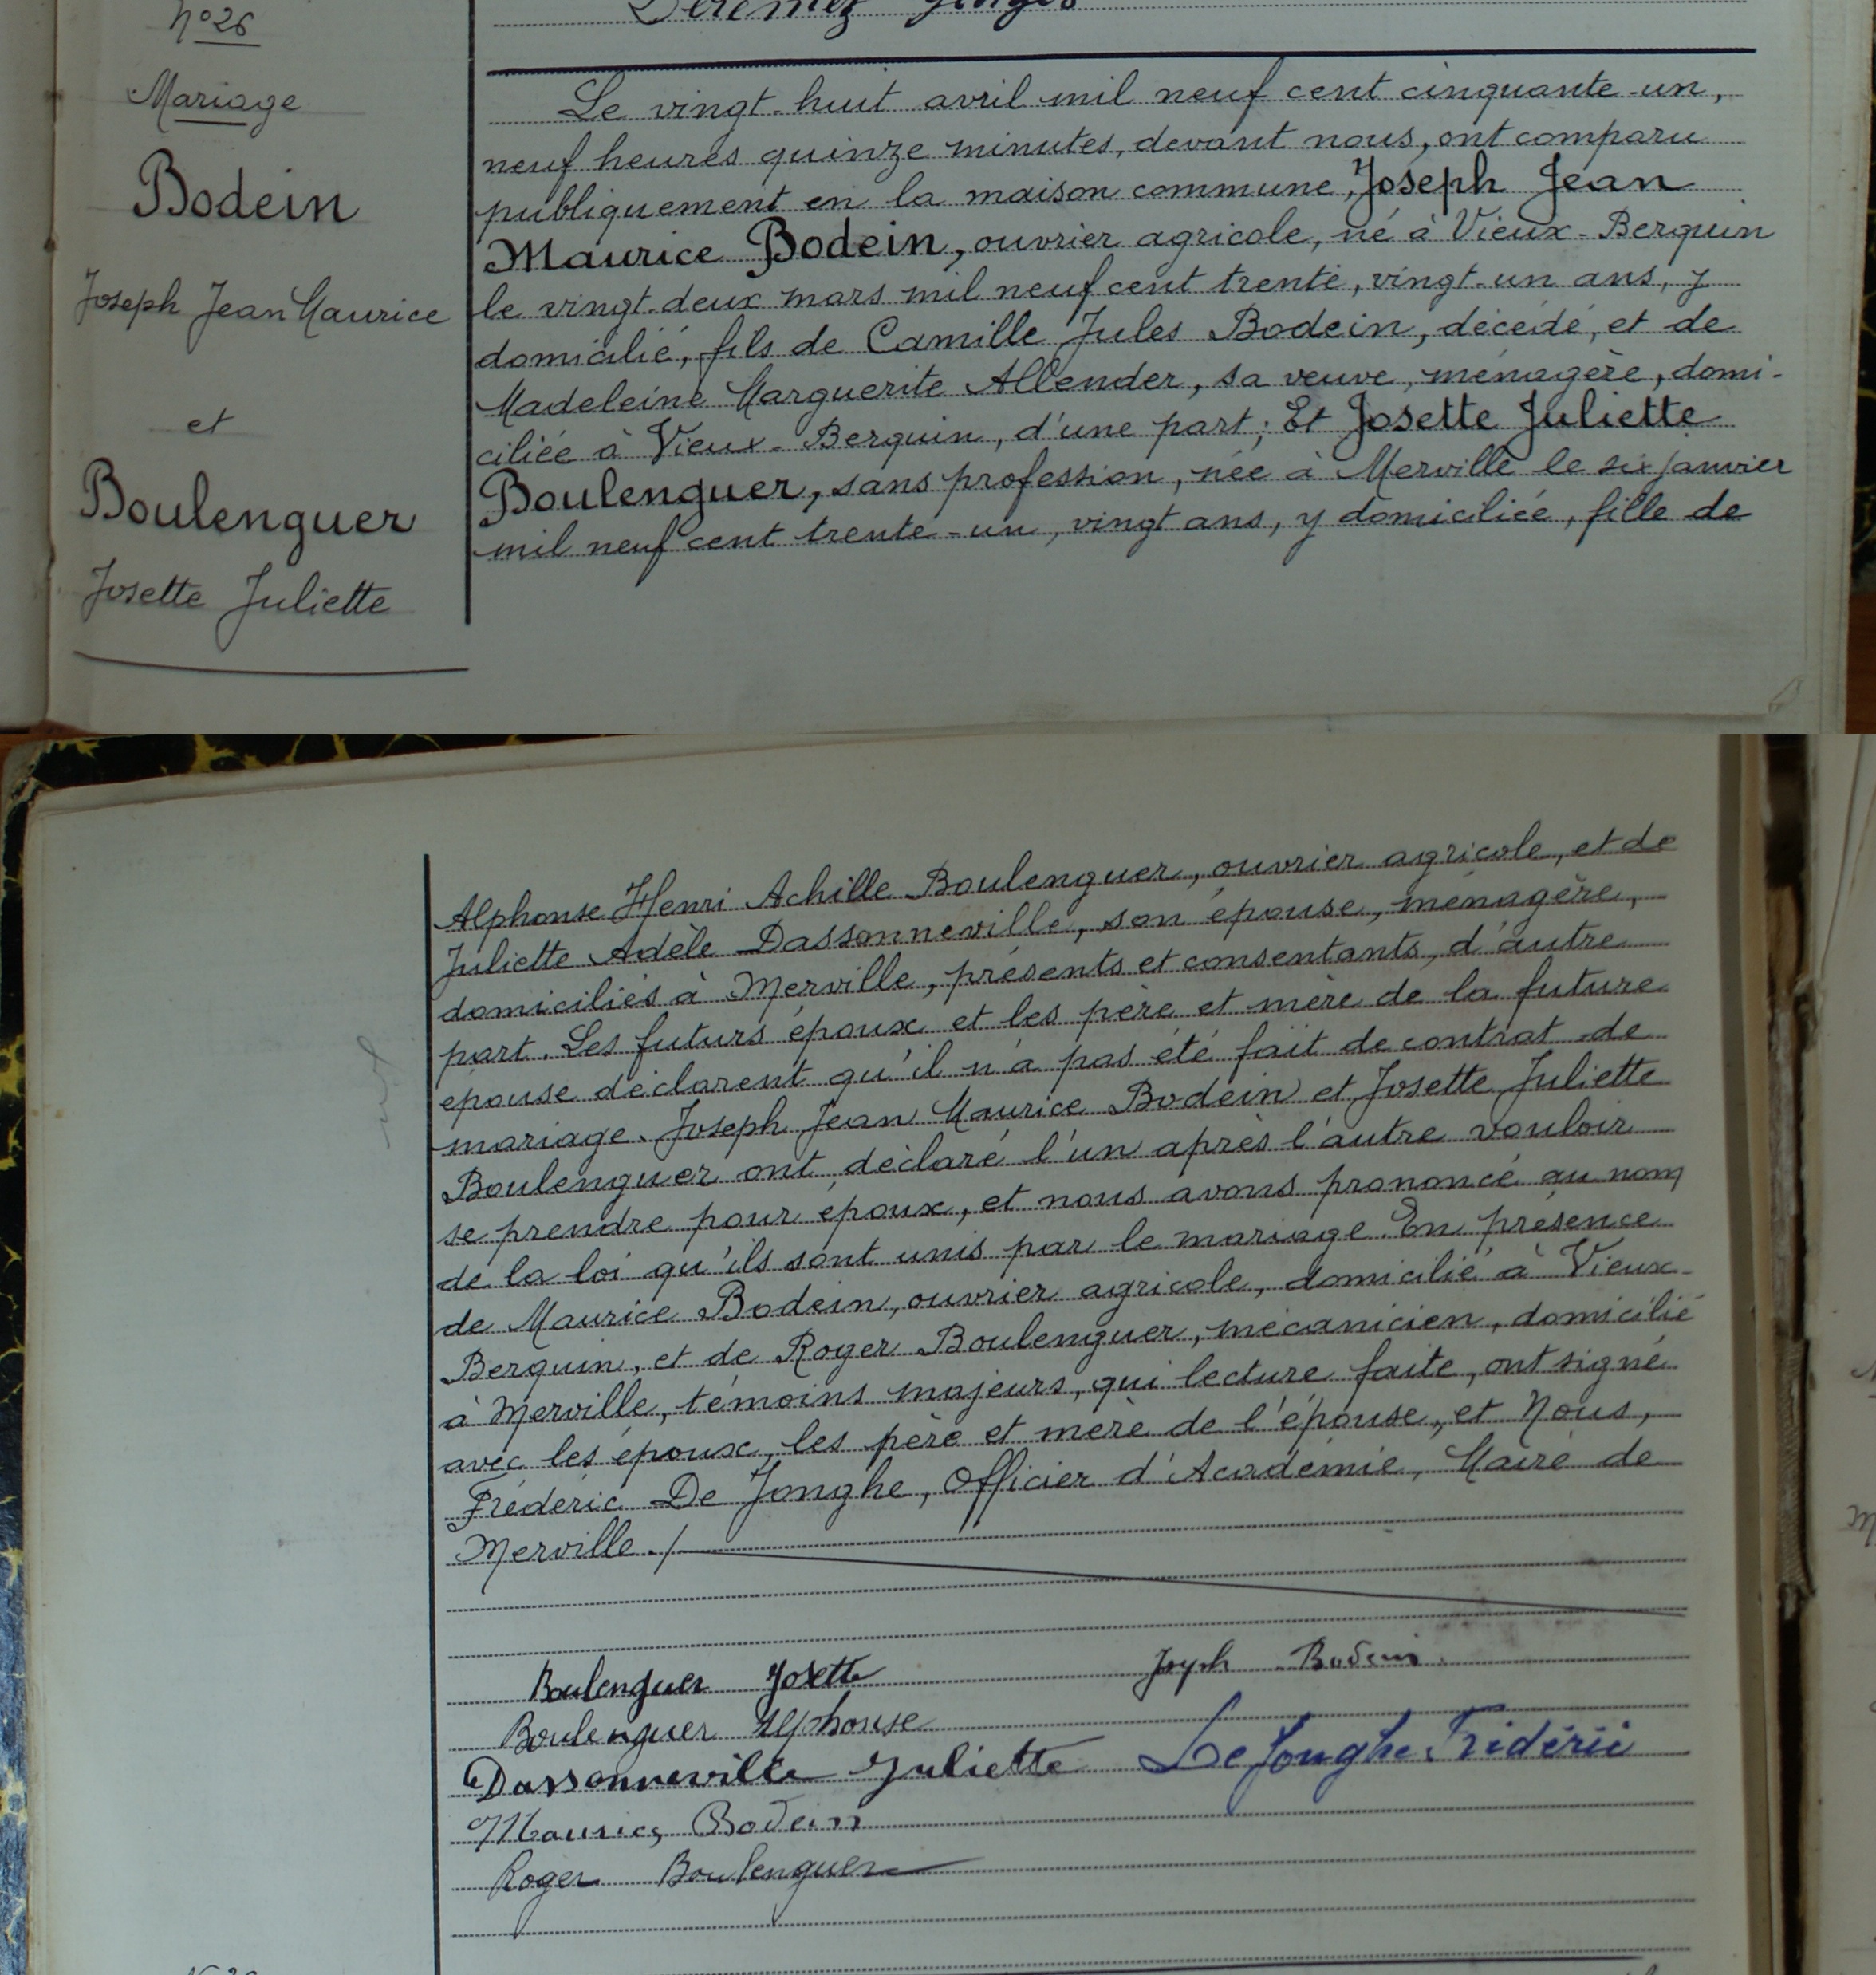 Deremez
N° 26
Mariage
Bodein
Joseph Jean Maurice
et
Boulenguer
Josette Juliette
Le vingt-huit avril mil neuf cent cinquante-un,
neuf heures quinze minutes, devant nous, ont comparu
publiquement en la maison commune, Joseph Jean
Maurice Bodein, ouvrier agricole, né à Vieux-Berquin
le vingt-deux mars mil neuf cent trente, vingt-un ans, y
domicilié, fils de Camille Jules Bodein, décédé, et de
Madeleine Marguerite Allender, sa veuve, ménagère, domi-
ciliée à Vieux-Berquin, d'une part; Et Josette Juliette
Boulenguer, sans profession, née à Merville le six janvier
mil neuf cent trente-un, vingt ans, y domiciliée, fille de
Alphonse Henri Achille Boulenguer, ouvrier agricole, et de
Juliette Adèle Dassonneville, son épouse, ménagère,
domiciliés à Merville, présents et consentants, d'autre
part. Les futurs époux et les père et mère de la future
épouse déclarent qu'il n'a pas été fait de contrat de
mariage. Joseph Jean Maurice Bodein et Josette Juliette
Boulenguer ont déclaré l'un après l'autre vouloir
se prendre pour époux, et nous avons prononcé au nom
de la loi qu'ils sont unis par le mariage. En présence
de Maurice Bodein, ouvrier agricole, domicilié à Vieux-
Berquin, et de Roger Boulenguer, mécanicien, domicilié
à Merville, témoins majeurs, qui lecture faite, ont signé
avec les époux, les père et mère de l'épouse, et Nous,
Frédéric De Jonghe, Officier d'Académie, Maire de
Merville ./
Boulenguer Josette
Joseph Bodein
Boulenguer Alphonse
Dassonneville Juliette
De Jonghe Frédéric
Maurice Bodein
Roger Boulenguer